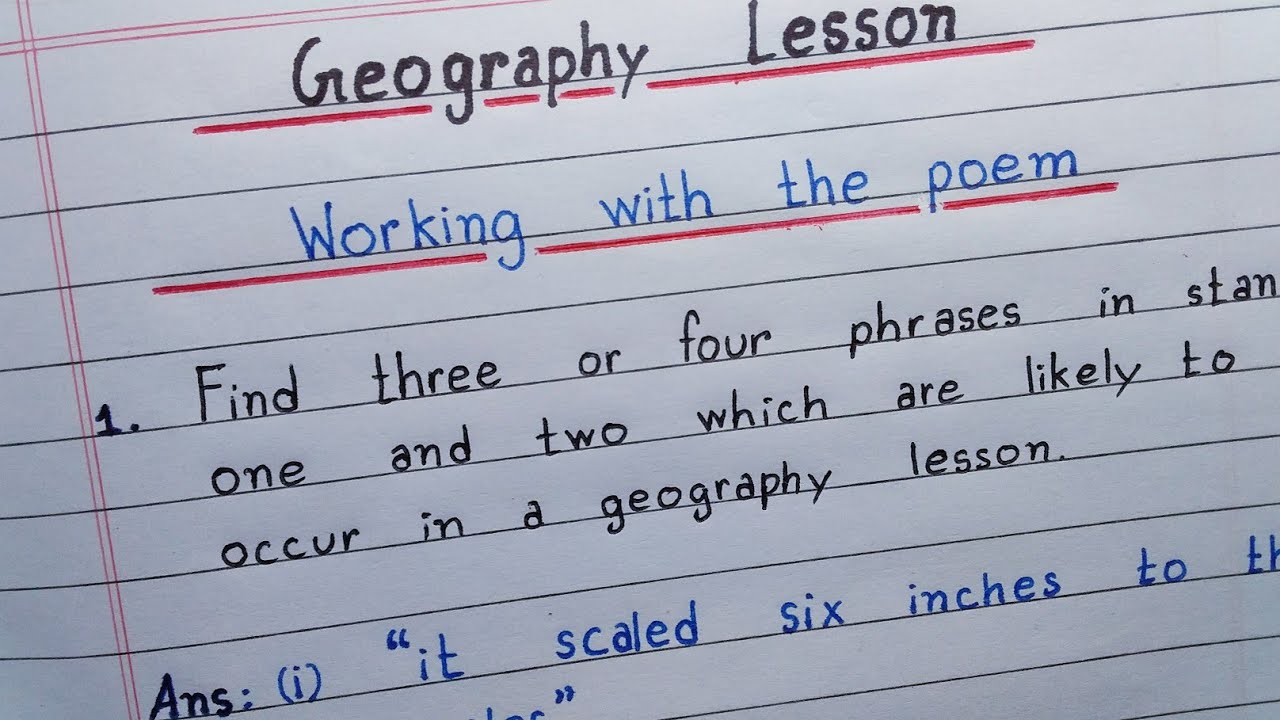 Geography Lesson
Working with the poem
1. Find three or four phrases in stan
one and two which are likely to
occur in a geography lesson.
Ans: (i) "it scaled six inches to th
"